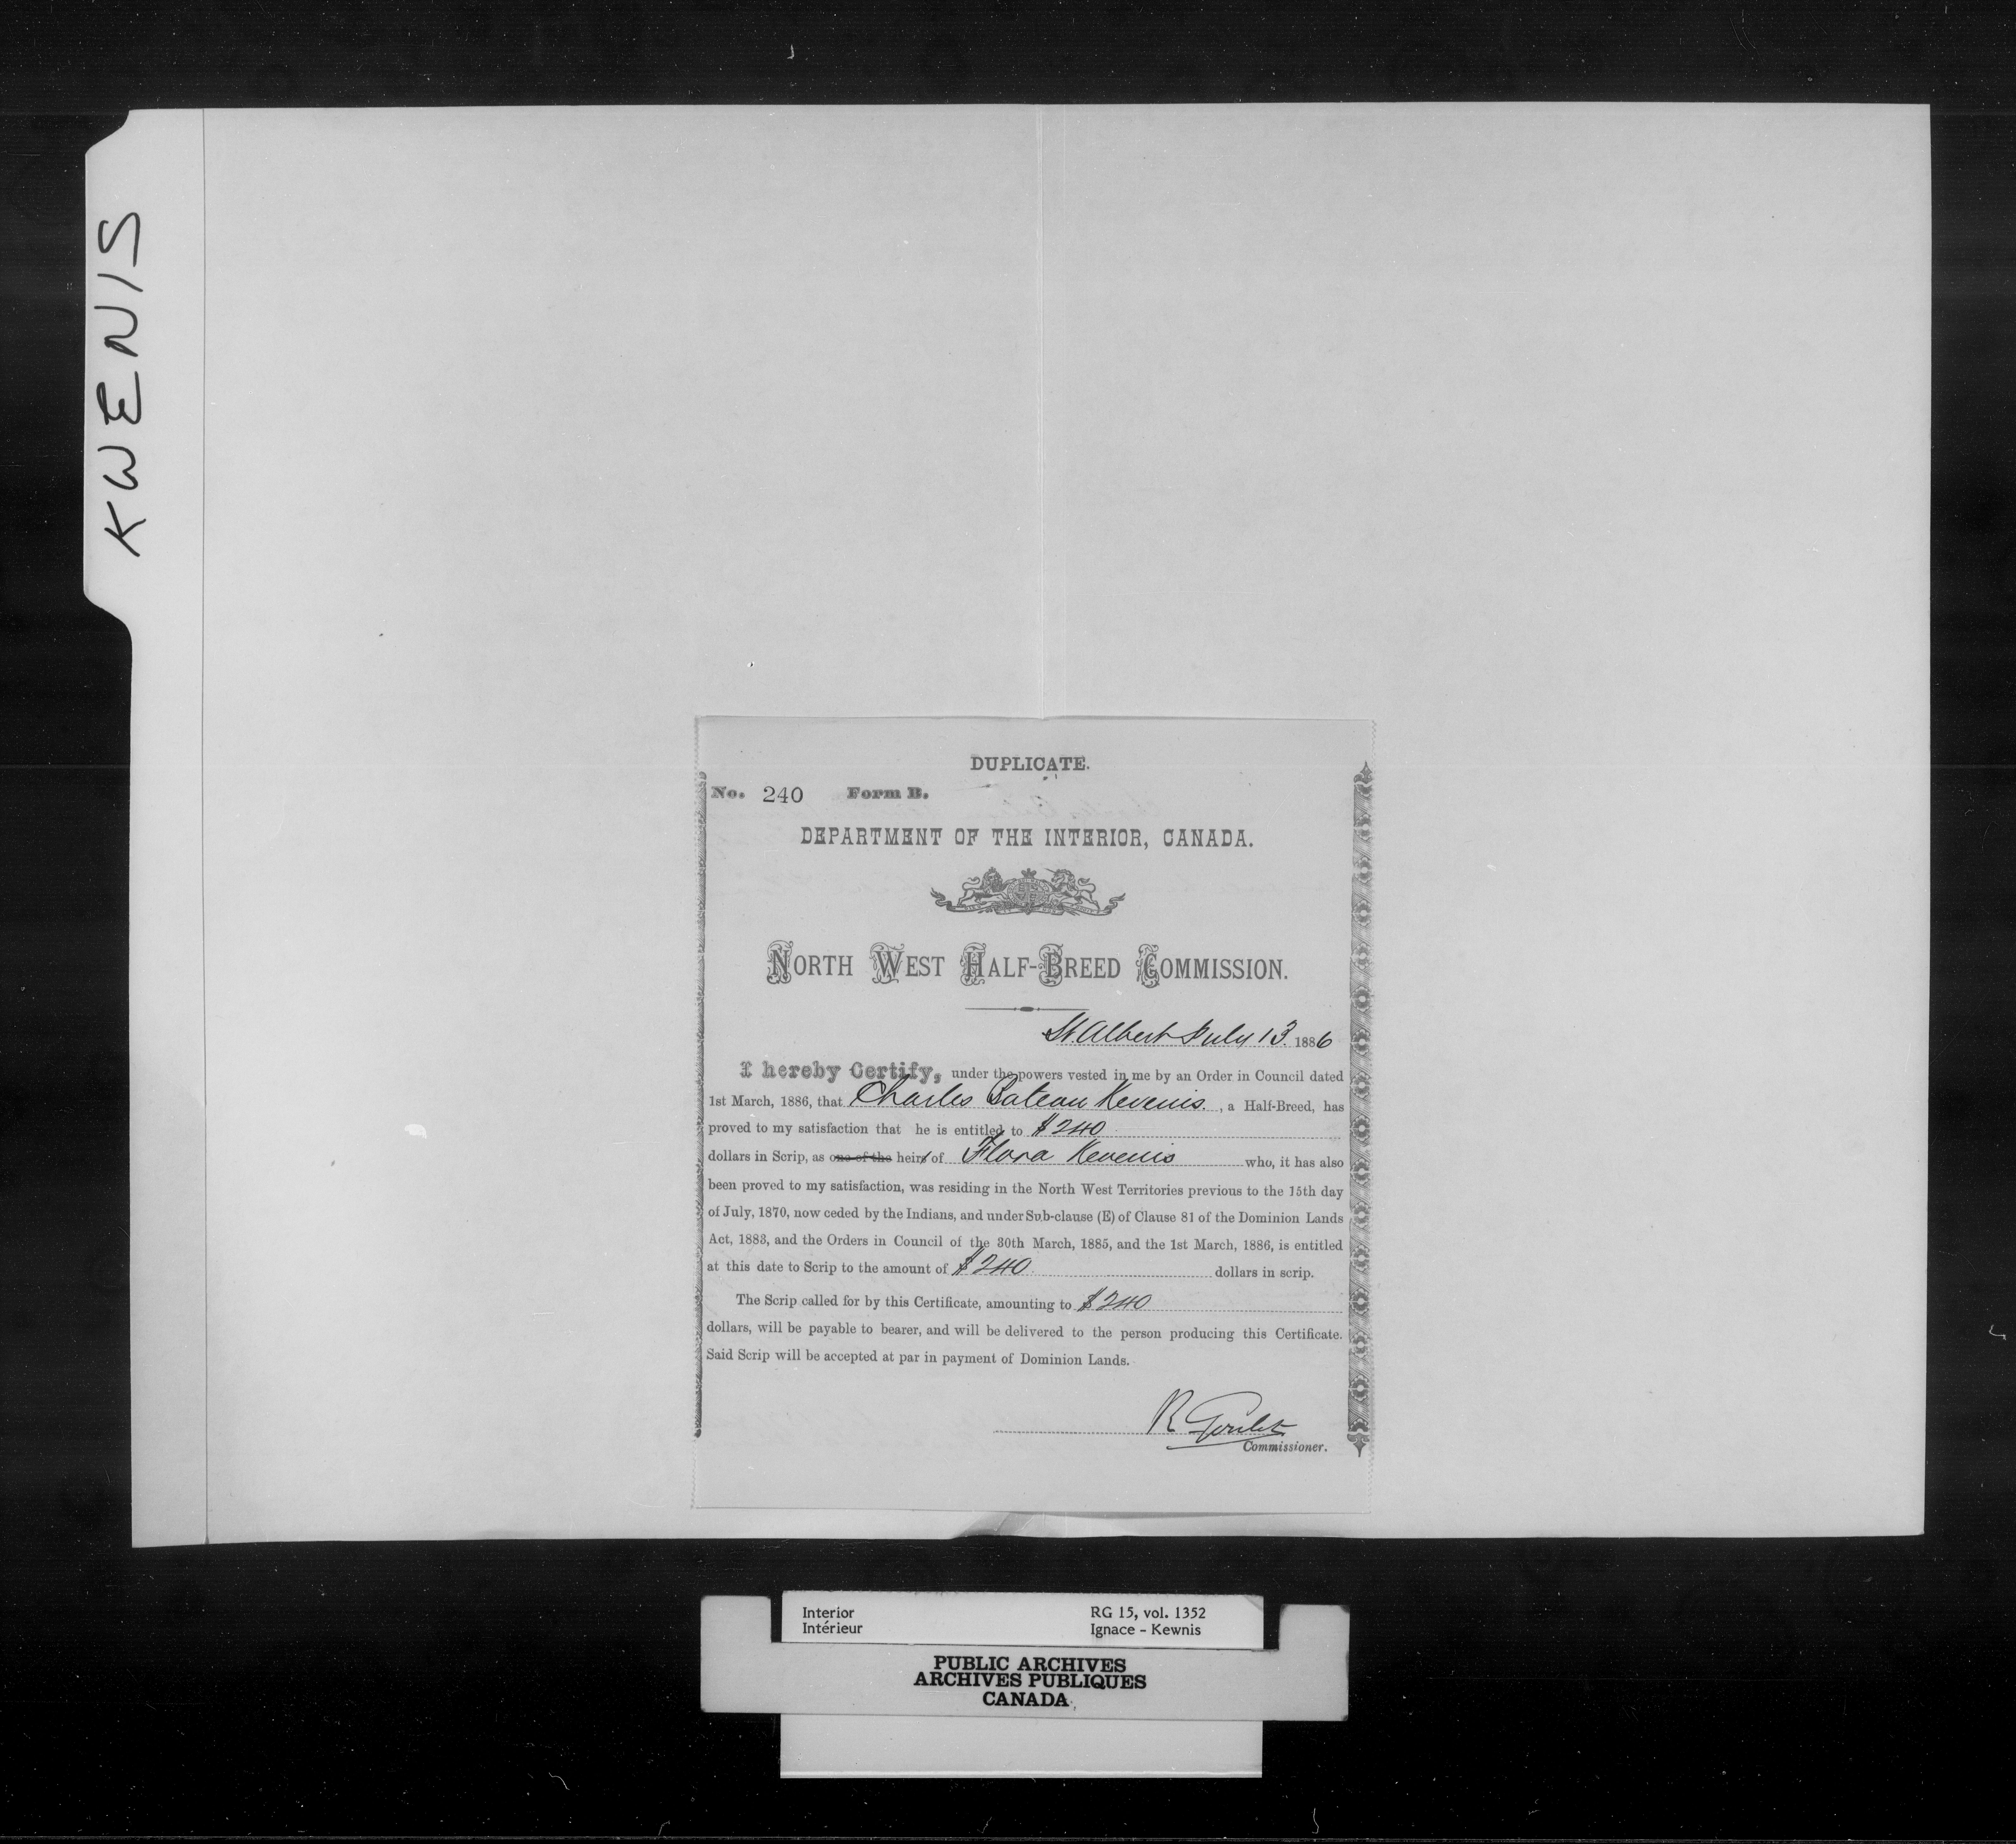 KWENIS
DUPLICATE.
No. 240 Form B.
DEPARTMENT OF THE INTERIOR, CANADA.
NORTH WEST HALF-BREED COMMISSION.
St. Albert July 13. 1886
I hereby Certify, under the powers vested in me by an Order in Council dated
1st March, 1886, that Charles Bateau Kevenis. , a Half-Breed, has
proved to my satisfaction that he is entitled to $240
dollars in Scrip, as one of the heirs of Flora Kevenis who, it has also
been proved to my satisfaction, was residing in the North West Territories previous to the 15th day
of July, 1870, now ceded by the Indians, and under Sub-clause (E) of Clause 81 of the Dominion Lands
Act, 1883, and the Orders in Council of the 30th March, 1885, and the 1st March, 1886, is entitled
at this date to Scrip to the amount of $240. dollars in scrip.
The Scrip called for by this Certificate, amounting to $240
dollars, will be payable to bearer, and will be delivered to the person producing this Certificate.
Said Scrip will be accepted at par in payment of Dominion Lands.
R Goulet
Commissioner.
Interior RG 15, vol. 1352
Intérieur Ignace - Kewnis
PUBLIC ARCHIVES
ARCHIVES PUBLIQUES
CANADA